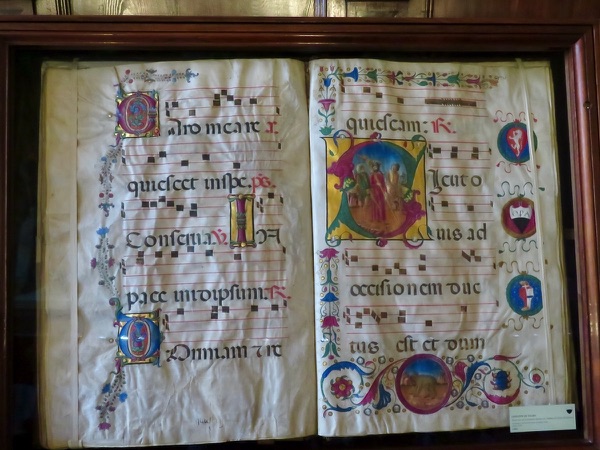 CAro mea re
quiescet in spe. ps.
Conserua. V. IN
pace in idipsum. R.
DOrmiam 7 re
quiescam: R.
SIcut o
uis ad
occisionem duc
tus est et dum
OPA